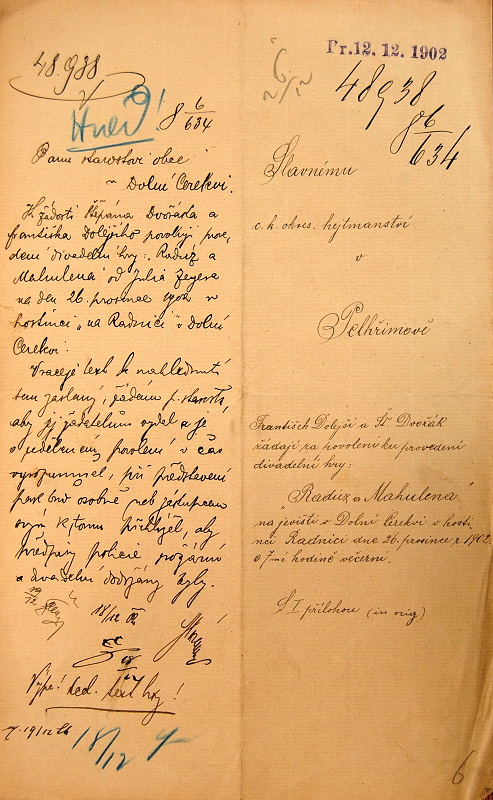 48.938
Hned!
8 6/634
Panu starostovi obce
v Dolní Cerekvi.
K žádosti Štěpána Dvořáka a
Františka Dolejšího povoluji prove-
dení divadelní hry: Radúz a
Mahulena od Julia Zeyera
na den 26. prosince 1902 v
hostinci "na Radnici" v Dolní
Cerekvi.
Vraceje text k nahlédnutí
sem zaslaný, žádám p. starostu,
aby jej žadatelům vydal a je
o uděleném povolení v čas
vyrozuměl, při představení
pak buď osobně neb zástupcem
k tomu přihlížel, aby
předpisy policie požární
a divadelní dodrženy byly.
18/12
text hry!
19/12
18/12
6
2/12
Pr. 12. 12. 1902
48938
8 6/634
Slavnému
c. k. okres. hejtmanství
v
Pelhřimově
František Dolejší a Št. Dvořák
žádají za povolení ku provedení
divadelní hry:
"Radúz a Mahulena"
na jevišti v Dolní Cerekvi v hosti
nci Radnici dne 26. prosince r. 1902
o 7mé hodině večerní.
S I přílohou (in orig)
6